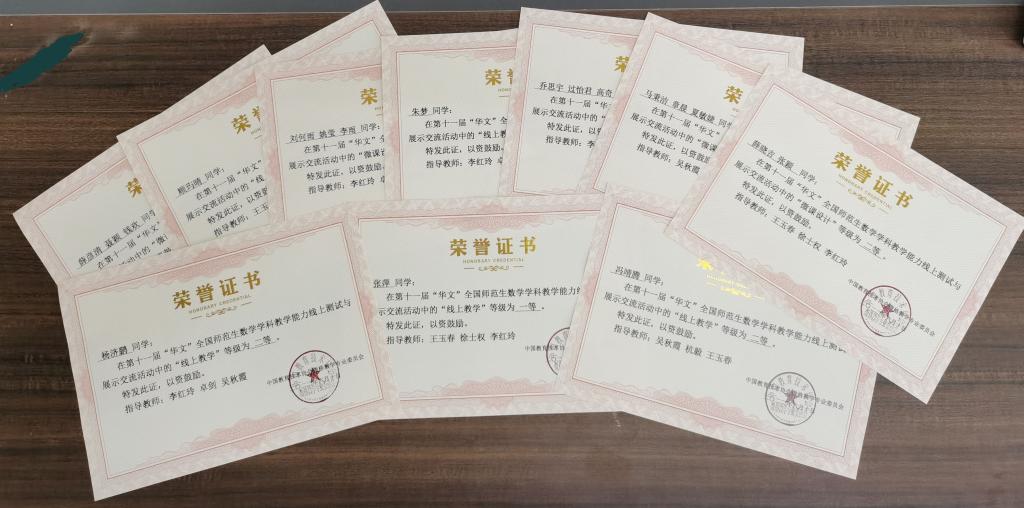 荣
同学:
在第十一届“华文”
展示交流活动中的“微
荣誉
同学:
在第十一届“华文”
展示交流活动中的“线
特发此证,以资鼓励。
指导教师:王玉
荣
刘何雨 姚莹 李雨 同学:
在第十一届“华文”全
展示交流活动中的“微课
特发此证,以资鼓励。
指导教师:李红玲 卓
荣誉
朱梦 同学:
在第十一届“华文”全国
展示交流活动中的“线上教学
特发此证,以资鼓励。
指导教师:李红玲 卓
荣
乔思宇 过怡君 高奇
在第十一届“华
展示交流活动中的“
特发此证,以资
指导教师:李红玲
荣誉
马秉洁 章晨 夏敏婕 同
在第十一届“华文
展示交流活动中的“微课
特发此证,以资鼓励。
指导教师:吴秋霞
荣誉证书
HONORARY CREDENTIAL
薛晓吉 张颖 同学:
在第十一届“华文”全国师范生数学学科教学能力线上测试与
展示交流活动中的“微课设计”等级为 二等 。
特发此证,以资鼓励。
指导教师:王玉春 徐士权 李红玲
荣誉证书
HONORARY CREDENTIAL
杨济鹏 同学:
在第十一届“华文”全国师范生数学学科教学能力线上测试与
展示交流活动中的“线上教学”等级为 二等 。
特发此证,以资鼓励。
指导教师:李红玲 卓剑 吴秋霞
荣誉证书
HONORARY CREDENTIAL
张萍 同学:
在第十一届“华文”全国师范生数学学科教学能力线
示交流活动中的“线上教学”等级为 一等 。
特发此证,以资鼓励。
指导教师:王玉春 徐士权 李红玲
冯靖腾 同学:
在第十一届“华文”全国师范生数学学科教学能力线上测试
展示交流活动中的“线上教学”等级为 二等 。
特发此证,以资鼓励。
指导教师:吴秋霞 杭毅 王玉春